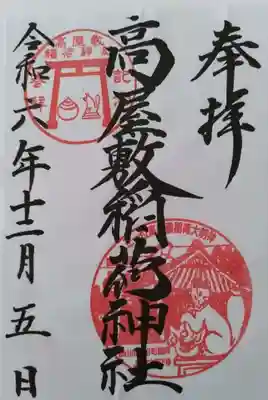 奉拝
高屋敷稲荷神社
令和六年十二月五日